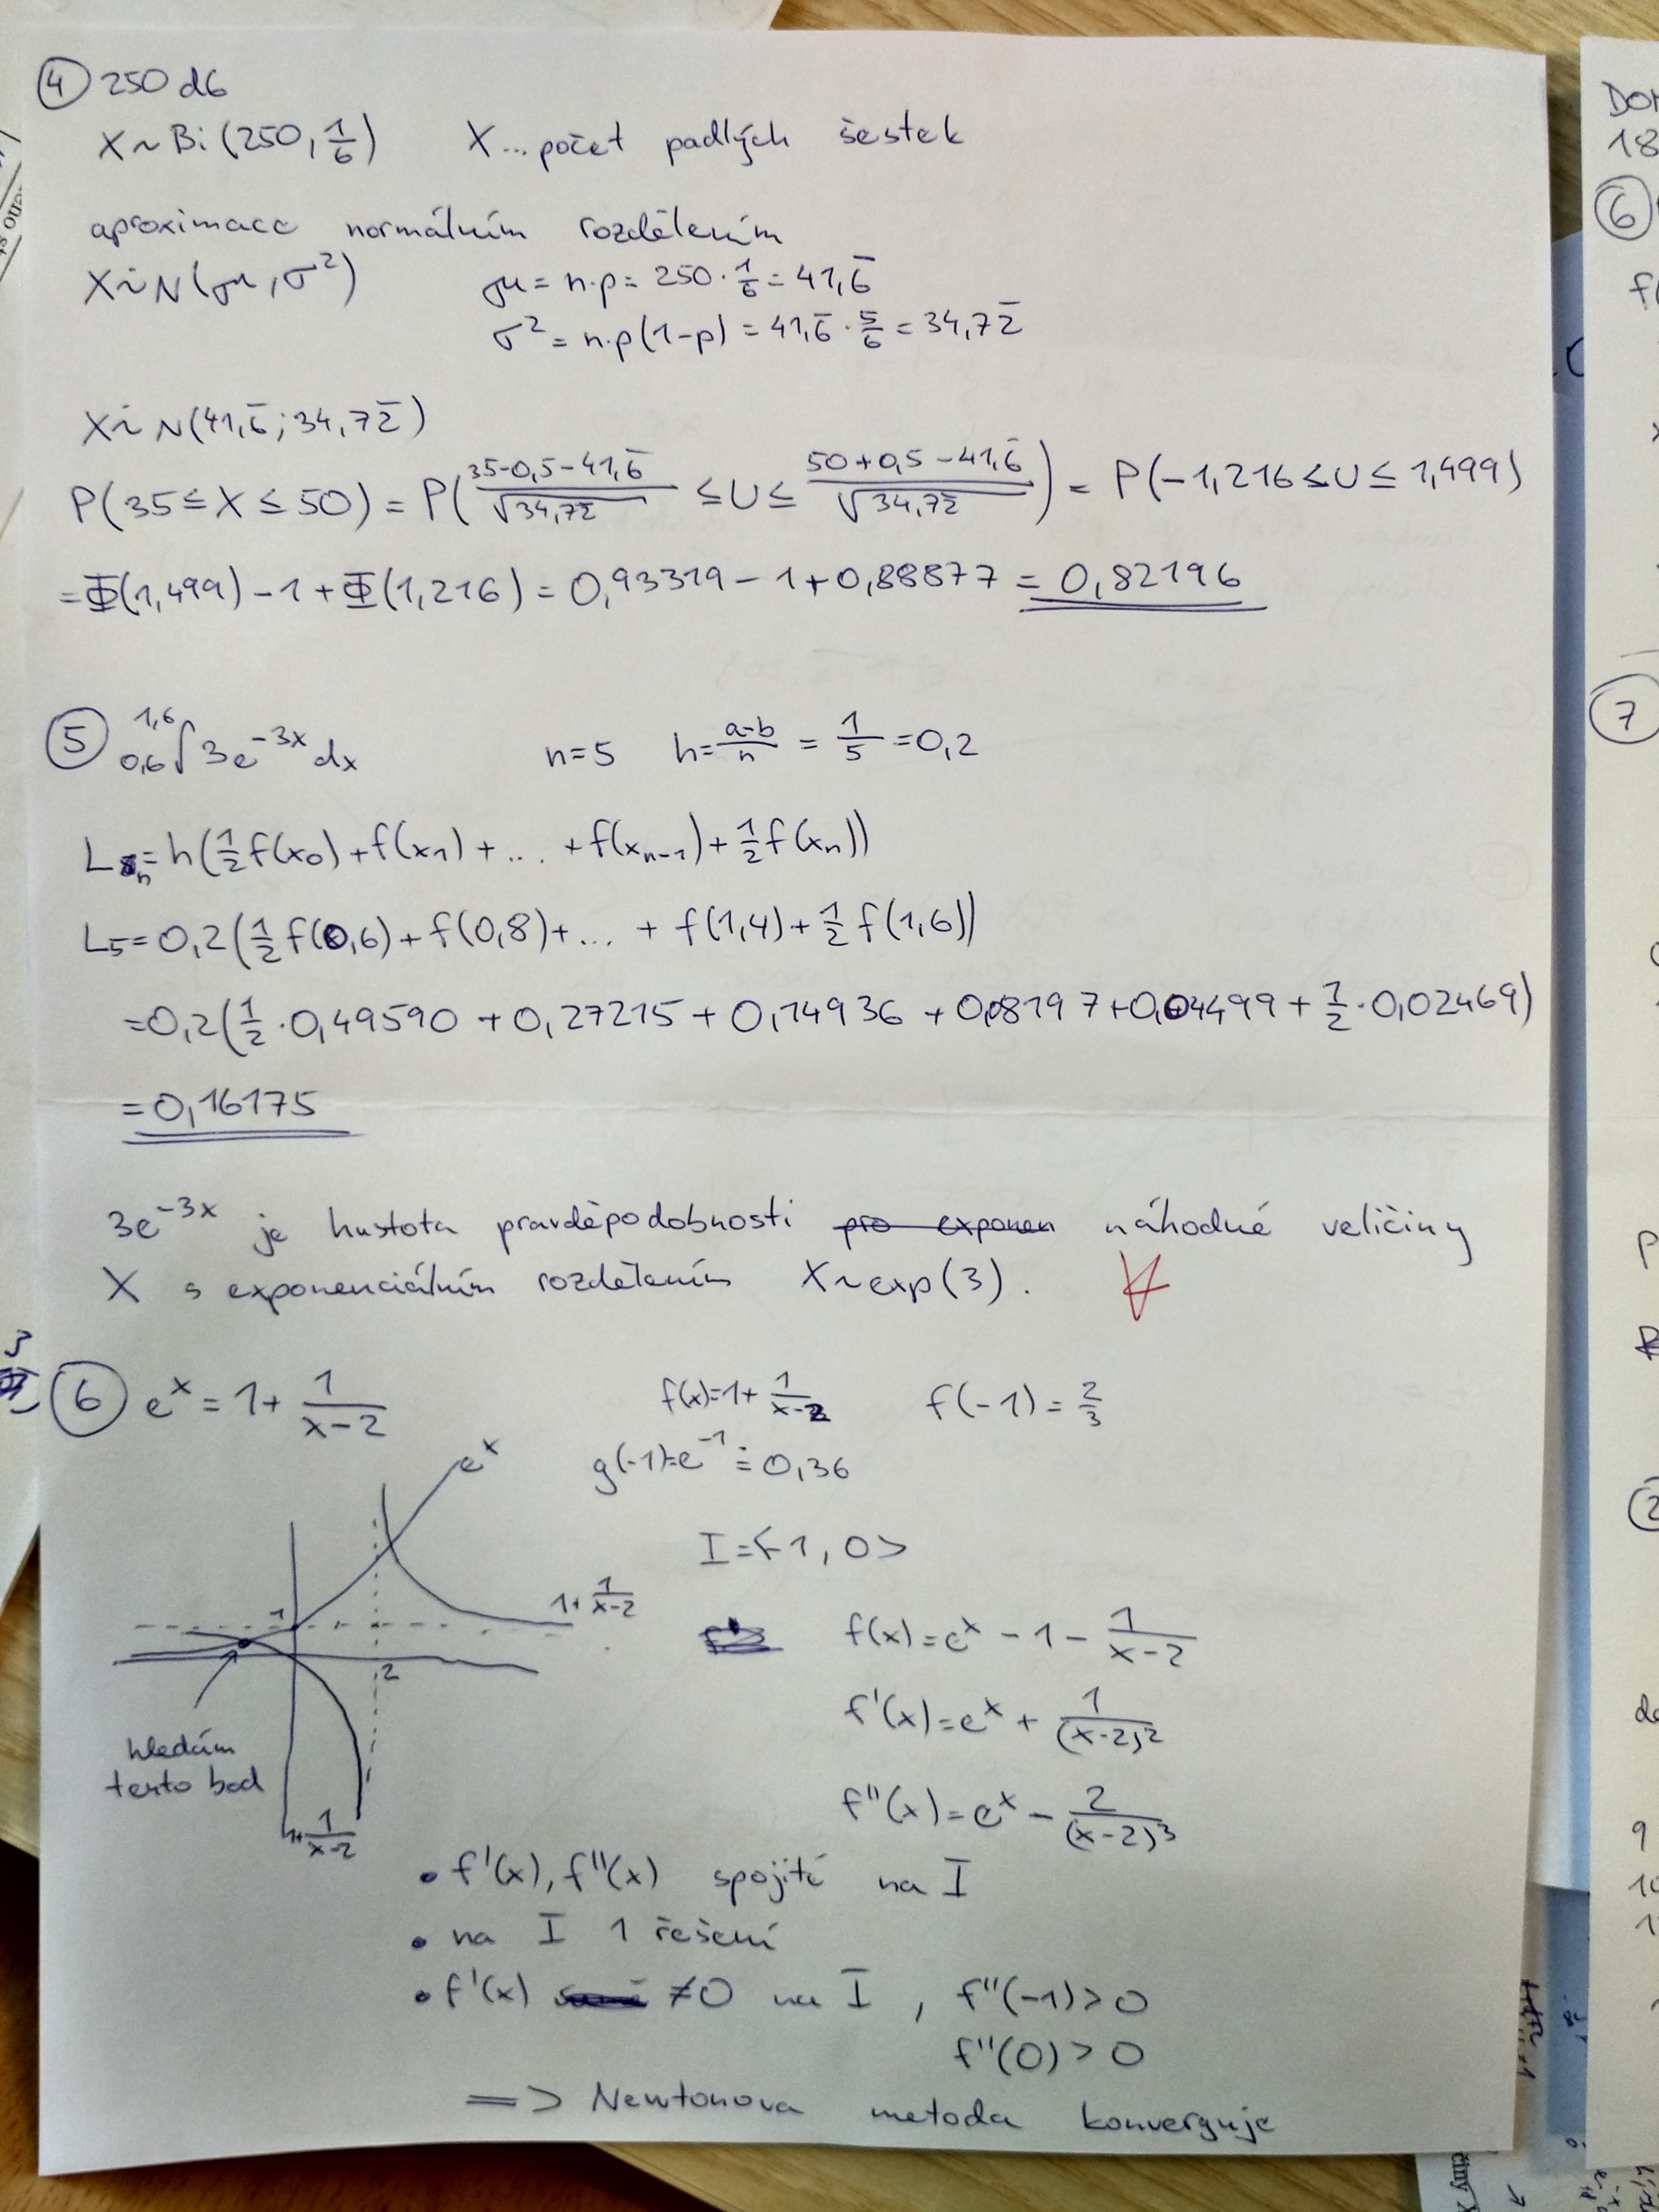 ④ 250 d6
X ~ Bi(250, 1/6) X... počet padlých šestek
aproximace normálním rozdělením
X ~̇ N(μ, σ²) μ = n·p = 250 · 1/6 = 41,6̄
σ² = n·p(1-p) = 41,6̄ · 5/6 = 34,72̄
X ~̇ N(41,6̄; 34,72̄)
P(35 ≤ X ≤ 50) = P((35-0,5-41,6̄)/√34,72̄ ≤ U ≤ (50+0,5-41,6̄)/√34,72̄) = P(-1,216 ≤ U ≤ 1,499)
= Φ(1,499) - 1 + Φ(1,216) = 0,93319 - 1 + 0,88877 = 0,82196
⑤ 0,6 ∫ 1,6 3e^-3x dx n=5 h = (a-b)/n = 1/5 = 0,2
Ln = h(1/2 f(x₀) + f(x₁) + ... + f(xₙ₋₁) + 1/2 f(xₙ))
L₅ = 0,2(1/2 f(0,6) + f(0,8) + ... + f(1,4) + 1/2 f(1,6))
= 0,2(1/2 · 0,49590 + 0,27215 + 0,14936 + 0,08197 + 0,04499 + 1/2 · 0,02469)
= 0,16175
3e^-3x je hustota pravděpodobnosti pro exponen náhodné veličiny
X s exponenciálním rozdělením X ~ exp(3).
⑥ e^x = 1 + 1/(x-2) f(x) = 1 + 1/(x-2) f(-1) = 2/3
g(-1) = e^-1 ≐ 0,36
e^x
I = <-1, 0>
1 + 1/(x-2)
1
2
f(x) = e^x - 1 - 1/(x-2)
f'(x) = e^x + 1/(x-2)²
hledám
tento bod
f''(x) = e^x - 2/(x-2)³
1+ 1/(x-2)
• f'(x), f''(x) spojité na I
• na I 1 řešení
• f'(x) ≠ 0 na I, f''(-1) > 0
f''(0) > 0
=> Newtonova metoda konverguje
⑥
⑦
18